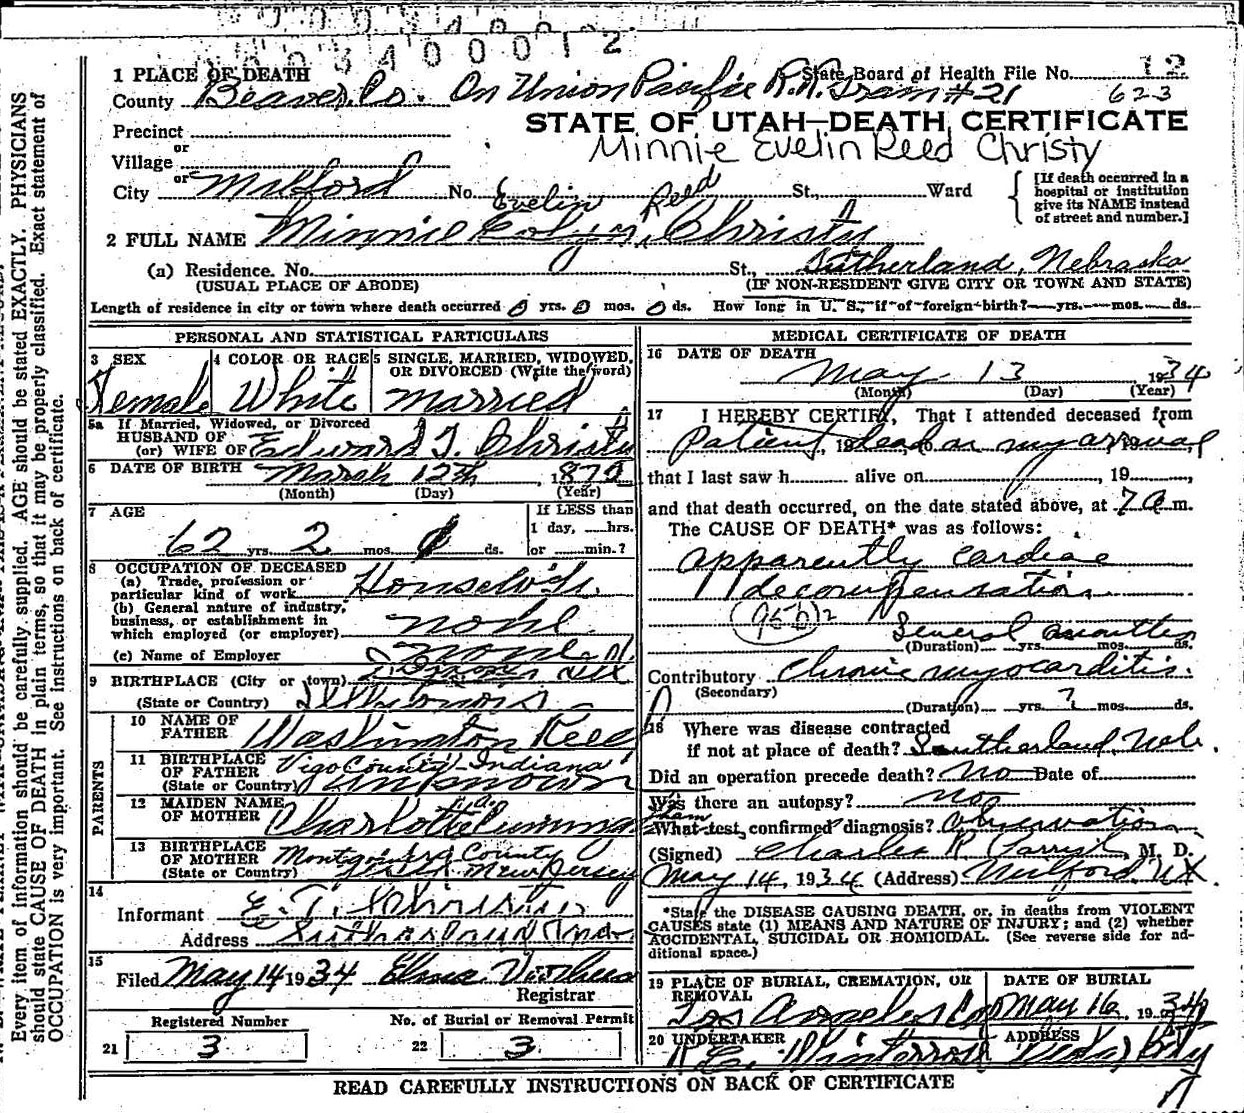 0 3 4 0 0 0 1 2
1 PLACE OF DEATH State Board of Health File No. 12
County Beaver Co. On Union Pacific R.R. Train #21 623
STATE OF UTAH—DEATH CERTIFICATE
Precinct
or
Minnie Evelin Reed Christy
Village
or
City Milford No. St., Ward
[If death occurred in a hospital or institution give its NAME instead of street and number.]
Evelin Reed
2 FULL NAME Minnie Christy
(a) Residence. No. St., Sutherland, Nebraska
(USUAL PLACE OF ABODE) (IF NON-RESIDENT GIVE CITY OR TOWN AND STATE)
Length of residence in city or town where death occurred 0 yrs. 0 mos. 0 ds. How long in U. S., if of foreign birth? yrs. mos. ds.
PERSONAL AND STATISTICAL PARTICULARS
3 SEX Female
4 COLOR OR RACE White
5 SINGLE, MARRIED, WIDOWED, OR DIVORCED (Write the word) Married
5a If Married, Widowed, or Divorced
HUSBAND OF
(or) WIFE OF Edward T. Christy
6 DATE OF BIRTH March 12th, 187
(Month) (Day) (Year)
7 AGE 62 yrs. 2 mos. ds.
If LESS than
1 day, hrs.
or min.?
8 OCCUPATION OF DECEASED
(a) Trade, profession or
particular kind of work Housewife
(b) General nature of industry,
business, or establishment in
which employed (or employer) none
(c) Name of Employer none
9 BIRTHPLACE (City or town) Dixon
(State or Country) Illinois
PARENTS
10 NAME OF FATHER Washington Reed
11 BIRTHPLACE OF FATHER Vigo County Indiana
(State or Country) Unknown
12 MAIDEN NAME OF MOTHER Charlotte
13 BIRTHPLACE OF MOTHER Montgomery County
(State or Country) New Jersey
14
Informant E. T. Christy
Address Sutherland
15
Filed May 14 1934 Elma
Registrar
Registered Number
21 3
No. of Burial or Removal Permit
22 3
MEDICAL CERTIFICATE OF DEATH
16 DATE OF DEATH
May 13 1934
(Month) (Day) (Year)
17 I HEREBY CERTIFY, That I attended deceased from
Patient, 19 dead on my arrival
that I last saw h alive on , 19
and that death occurred, on the date stated above, at 7 a m.
The CAUSE OF DEATH* was as follows:
apparently cardiac
decompensation
95b 2
Several months
(Duration) yrs. mos. ds.
Contributory Chronic myocarditis.
(Secondary)
(Duration) yrs. ? mos. ds.
18 Where was disease contracted
if not at place of death? Sutherland, Neb.
Did an operation precede death? No Date of
Was there an autopsy? no
What test confirmed diagnosis? Observation
(Signed) Charles R Parrish, M. D.
May 14, 1934 (Address) Milford, Ut.
*State the DISEASE CAUSING DEATH, or, in deaths from VIOLENT
CAUSES state (1) MEANS AND NATURE OF INJURY; and (2) whether
ACCIDENTAL, SUICIDAL OR HOMICIDAL. (See reverse side for additional space.)
19 PLACE OF BURIAL, CREMATION, OR REMOVAL Los Angeles
DATE OF BURIAL May 16, 1934
20 UNDERTAKER
ADDRESS Cedar City
READ CAREFULLY INSTRUCTIONS ON BACK OF CERTIFICATE
Every item of information should be carefully supplied. AGE should be stated EXACTLY. PHYSICIANS
should state CAUSE OF DEATH in plain terms, so that it may be properly classified. Exact statement of
OCCUPATION is very important. See instructions on back of certificate.